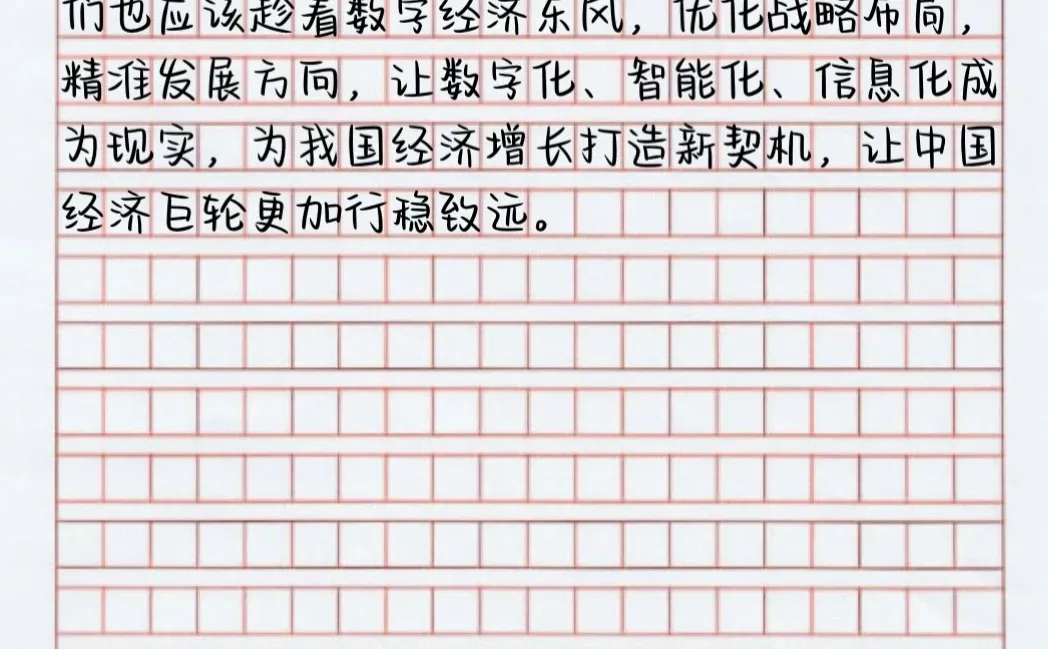 们也应该趁着数字经济东风，优化战略布局，
精准发展方向，让数字化、智能化、信息化成
为现实，为我国经济增长打造新契机，让中国
经济巨轮更加行稳致远。